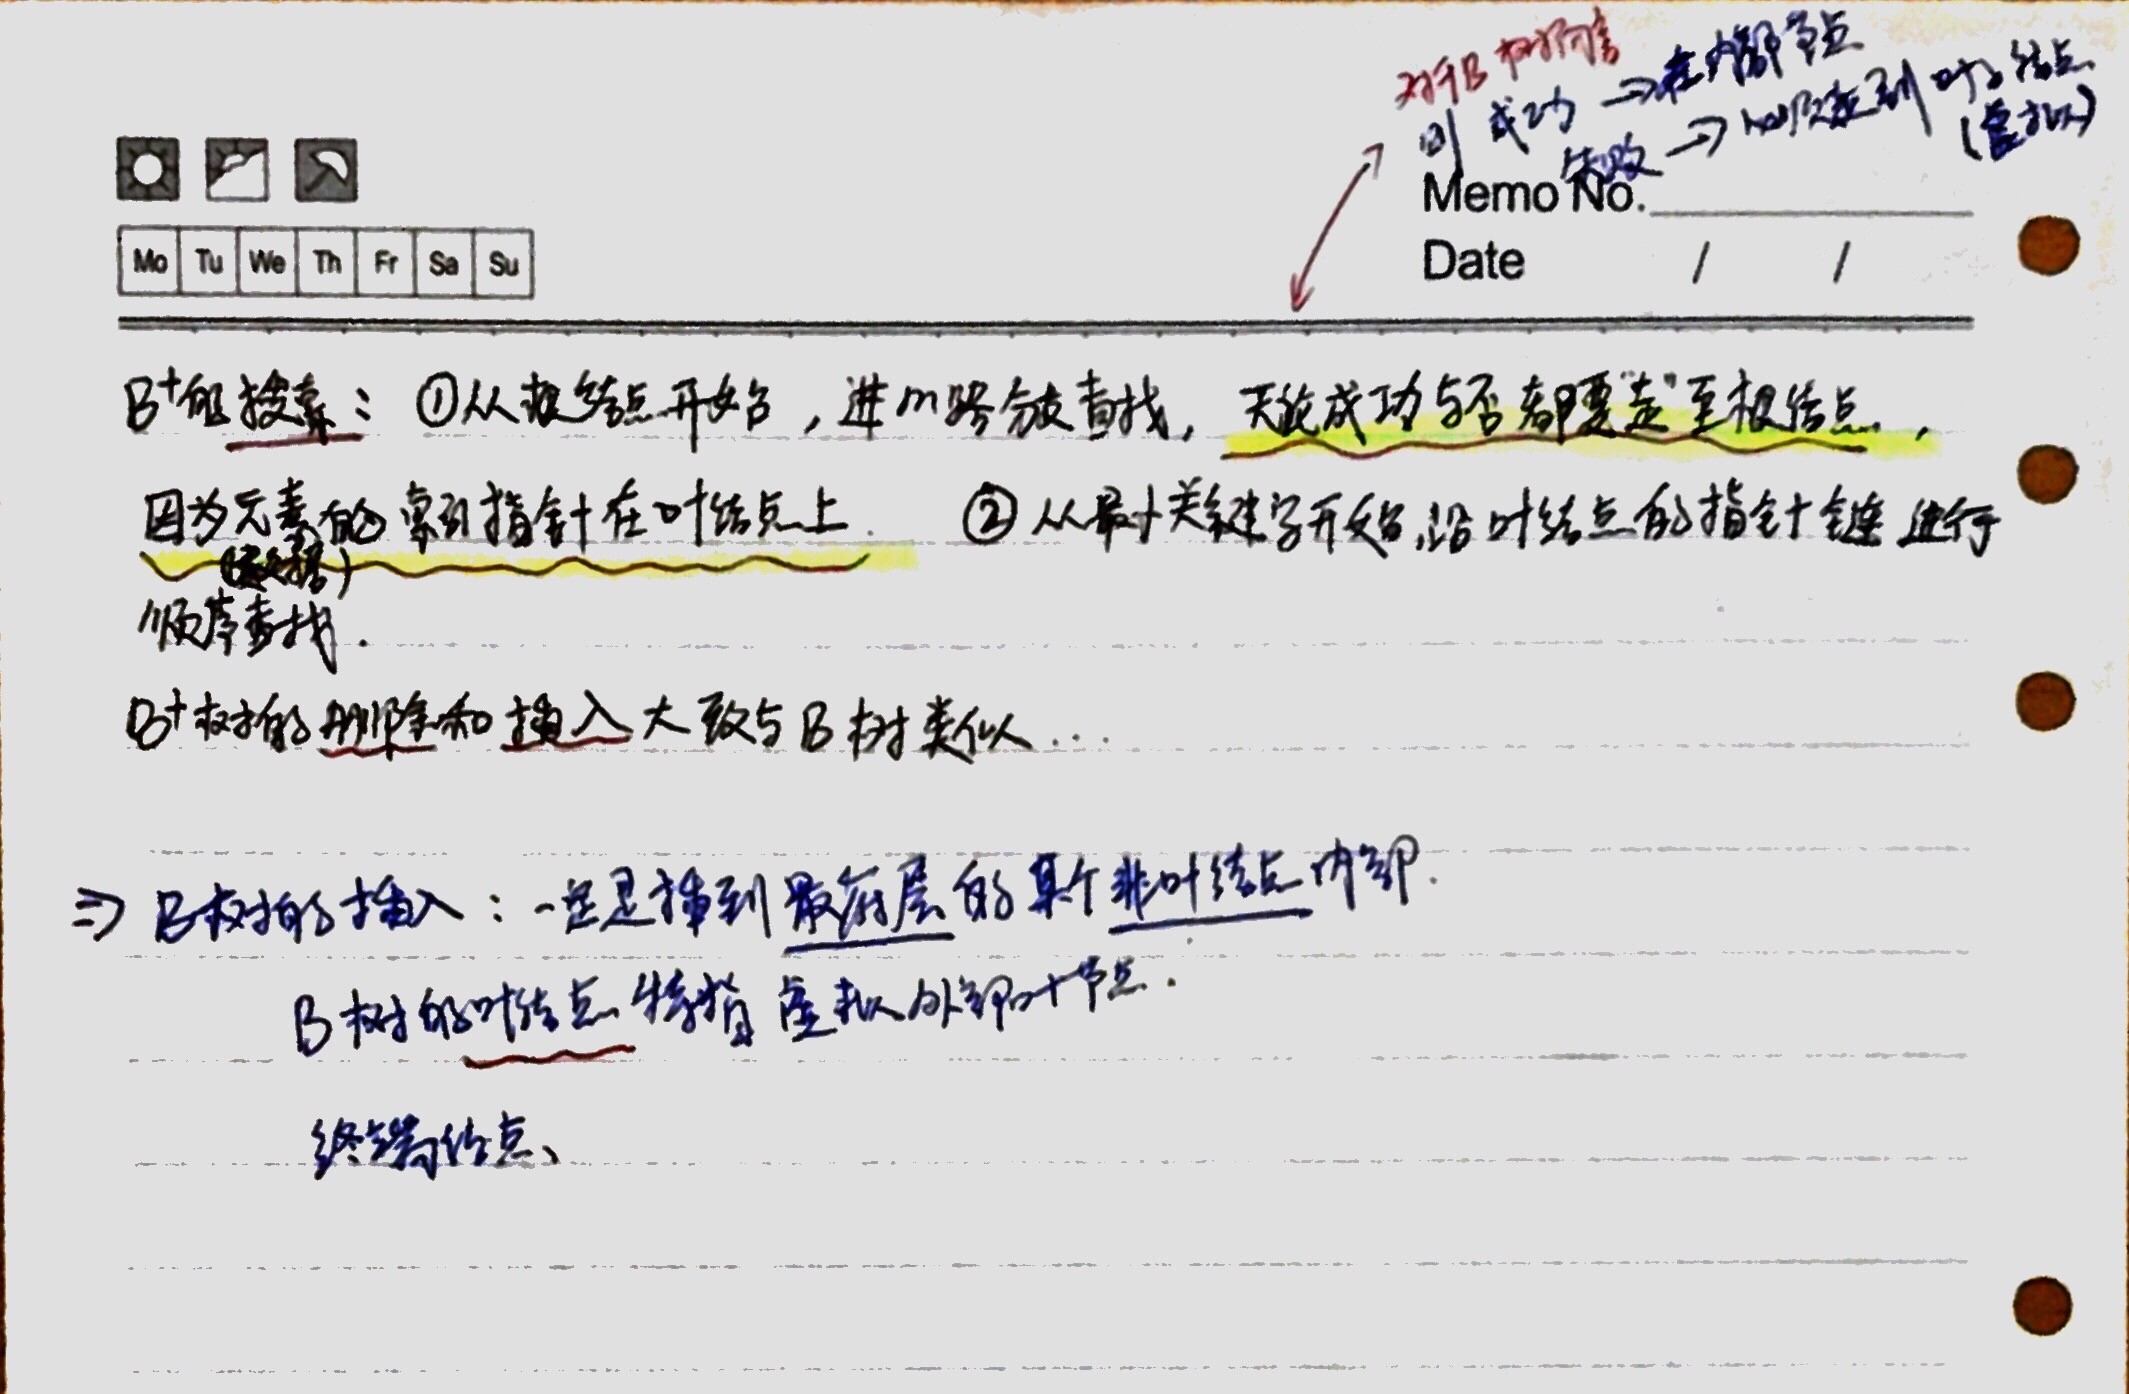 对于B树而言
则 成功 → 在内部节点
失败 → 一般走到叶子结点
(虚拟)
Memo No.
Date / /
Mo Tu We Th Fr Sa Su
B+的搜索：①从根结点开始，进m路分支查找，无论成功与否都要"走"至极结点，
因为元素的索引指针在叶结点上 ②从最小关键字开始，沿叶结点的指针链进行
(数据)
顺序查找.
B+树的删除和插入大致与B树类似...
⇒ B树的插入：一定是插到最底层的某个非叶结点内部.
B树的叶结点特指虚拟外部叶节点.
终端结点、